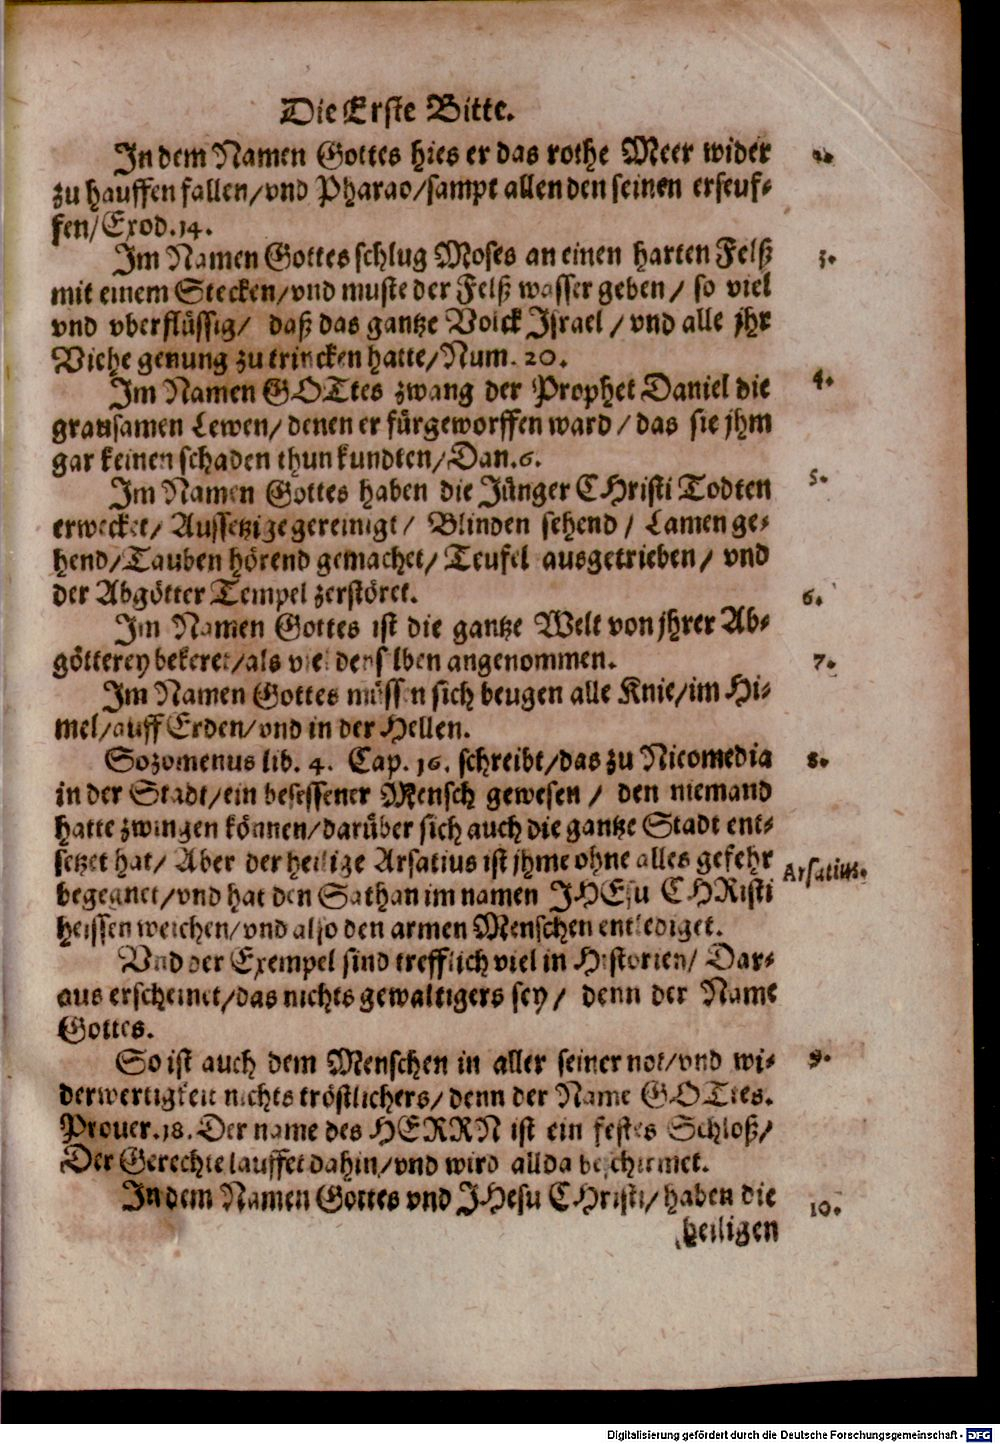 Die Erste Bitte.
In dem Namen Gottes hies er das rothe Meer wider
zu hauffen fallen/vnd Pharao/sampt allen den seinen erseuf-
fen/Exod.14.
Im Namen Gottes schlug Moses an einen harten Felß 3.
mit einem Stecken/vnd muste der Felß wasser geben/ so viel
vnd vberflüssig/ daß das gantze Volck Israel/vnd alle jhr
Viehe genung zu trincken hatte/Num. 20.
Im Namen GOTtes zwang der Prophet Daniel die 4.
grausamen Lewen/denen er fürgeworffen ward/das sie jhm
gar keinen schaden thun kundten/Dan.6.
Im Namen Gottes haben die Jünger CHristi Todten 5.
erwecket/ Aussetzige gereinigt/ Blinden sehend/ Lamen ge-
hend/Tauben hörend gemachet/ Teufel ausgetrieben/ vnd
der Abgötter Tempel zerstöret.
Im Namen Gottes ist die gantze Welt von jhrer Ab- 6.
götterey bekeret/als viel denselben angenommen.
Im Namen Gottes müssen sich beugen alle Knie/im Hi- 7.
mel/auff Erden/vnd in der Hellen.
Sozomenus lib. 4. Cap. 16. schreibt/das zu Nicomedia 8.
in der Stadt/ein besessener Mensch gewesen/ den niemand
hatte zwingen können/darüber sich auch die gantze Stadt ent-
setzet hat/ Aber der heilige Arsatius ist jhme ohne alles gefehr Arsatius.
begegnet/vnd hat den Sathan im namen JHEsu CHRisti
heissen weichen/vnd also den armen Menschen entlediget.
Vnd der Exempel sind trefflich viel in Historien/ Dar-
aus erscheinet/das nichts gewaltigers sey/ denn der Name
Gottes.
So ist auch dem Menschen in aller seiner not/vnd wi- 9.
derwertigkeit nichts tröstlichers/denn der Name GOTtes.
Prouer.18. Der name des HERRN ist ein festes Schloß/
Der Gerechte lauffet dahin/vnd wird allda beschirmet.
In dem Namen Gottes vnd JHesu CHristi/haben die 10.
heiligen
Digitalisierung gefördert durch die Deutsche Forschungsgemeinschaft - DFG